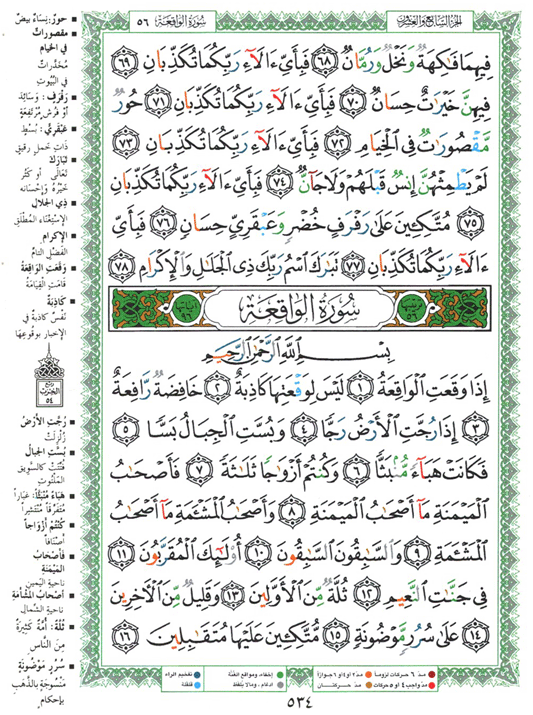 الجزء السابع والعشرون
سورة الواقعة ٥٦
فِيهِمَا فَاكِهَةٌ وَنَخْلٌ وَرُمَّانٌ ٦٨ فَبِأَيِّ ءَالَآءِ رَبِّكُمَا تُكَذِّبَانِ ٦٩
فِيهِنَّ خَيْرَاتٌ حِسَانٌ ٧٠ فَبِأَيِّ ءَالَآءِ رَبِّكُمَا تُكَذِّبَانِ ٧١ حُورٌ
مَّقْصُورَاتٌ فِي الْخِيَامِ ٧٢ فَبِأَيِّ ءَالَآءِ رَبِّكُمَا تُكَذِّبَانِ ٧٣
لَمْ يَطْمِثْهُنَّ إِنسٌ قَبْلَهُمْ وَلَا جَآنٌّ ٧٤ فَبِأَيِّ ءَالَآءِ رَبِّكُمَا تُكَذِّبَانِ
٧٥ مُتَّكِئِينَ عَلَىٰ رَفْرَفٍ خُضْرٍ وَعَبْقَرِيٍّ حِسَانٍ ٧٦ فَبِأَيِّ
ءَالَآءِ رَبِّكُمَا تُكَذِّبَانِ ٧٧ تَبَارَكَ اسْمُ رَبِّكَ ذِي الْجَلَالِ وَالْإِكْرَامِ ٧٨
ترتيبها ٥٦ سُورَةُ الْوَاقِعَةِ آياتها ٩٦
بِسْمِ اللَّهِ الرَّحْمَٰنِ الرَّحِيمِ
إِذَا وَقَعَتِ الْوَاقِعَةُ ١ لَيْسَ لِوَقْعَتِهَا كَاذِبَةٌ ٢ خَافِضَةٌ رَّافِعَةٌ
٣ إِذَا رُجَّتِ الْأَرْضُ رَجًّا ٤ وَبُسَّتِ الْجِبَالُ بَسًّا ٥
فَكَانَتْ هَبَآءً مُّنۢبَثًّا ٦ وَكُنتُمْ أَزْوَاجًا ثَلَاثَةً ٧ فَأَصْحَابُ
الْمَيْمَنَةِ مَآ أَصْحَابُ الْمَيْمَنَةِ ٨ وَأَصْحَابُ الْمَشْـَٔمَةِ مَآ أَصْحَابُ
الْمَشْـَٔمَةِ ٩ وَالسَّابِقُونَ السَّابِقُونَ ١٠ أُولَٰٓئِكَ الْمُقَرَّبُونَ ١١
فِي جَنَّاتِ النَّعِيمِ ١٢ ثُلَّةٌ مِّنَ الْأَوَّلِينَ ١٣ وَقَلِيلٌ مِّنَ الْآخِرِينَ
١٤ عَلَىٰ سُرُرٍ مَّوْضُونَةٍ ١٥ مُّتَّكِئِينَ عَلَيْهَا مُتَقَابِلِينَ ١٦
حُورٌ: نِسَاءٌ بِيضٌ
مَقْصُورَاتٌ
فِي الْخِيَامِ
مُخَدَّرَاتٌ
فِي الْبُيُوتِ
رَفْرَفٍ: وَسَائِدَ
أَوْ فُرُشٍ مُرْتَفِعَةٍ
عَبْقَرِيٍّ: بُسُطٍ
ذَاتِ خَمْلٍ رَقِيقٍ
تَبَارَكَ
تَعَالَى أَوْ كَثُرَ
خَيْرُهُ وَإِحْسَانُه
ذِي الْجَلَالِ
الِاسْتِغْنَاءِ الْمُطْلَقِ
الْإِكْرَامِ
الْفَضْلِ التَّامِّ
وَقَعَتِ الْوَاقِعَةُ
قَامَتِ الْقِيَامَةُ
كَاذِبَةٌ
نَفْسٌ كَاذِبَةٌ فِي
الْإِخْبَارِ بِوُقُوعِهَا
ربع
الحزب
٥٤
رُجَّتِ الْأَرْضُ
زُلْزِلَتْ
بُسَّتِ الْجِبَالُ
فُتِّتَتْ كَالسَّوِيقِ
الْمَلْتُوتِ
هَبَاءً مُنْبَثًّا: غُبَاراً
مُتَفَرِّقاً مُنْتَشِراً
كُنْتُمْ أَزْوَاجاً
أَصْنَافاً
فَأَصْحَابُ
الْمَيْمَنَةِ
نَاحِيَةِ الْيَمِينِ
أَصْحَابُ الْمَشْأَمَةِ
نَاحِيَةِ الشِّمَالِ
ثُلَّةٌ: أُمَّةٌ كَثِيرَةٌ
مِنَ النَّاسِ
سُرُرٍ مَوْضُونَةٍ
مَنْسُوجَةٍ بِالذَّهَبِ
بِإِحْكَامٍ
مدّ ٦ حركات لزوماً مدّ ٢ أو ٤ أو ٦ جوازاً إخفاء، ومواقع الغُنَّة تفخيم الراء
مدّ واجب ٤ أو ٥ حركات مدّ حركتان إدغام، وما لا يُلفظ قلقلة
٥٣٤